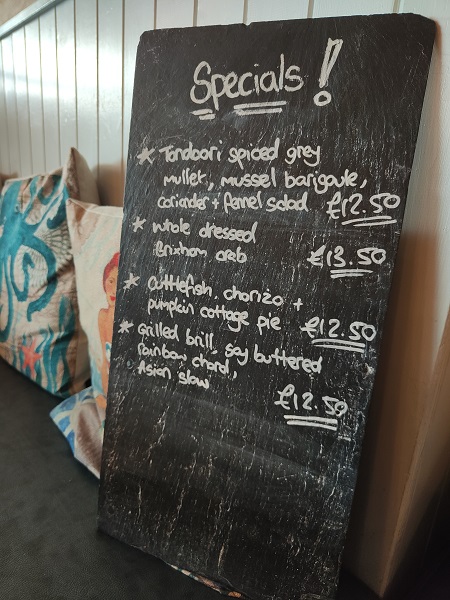 Specials!
* Tandoori spiced grey
mullet, mussel barigoule,
coriander + fennel salad £12.50
* whole dressed
Brixham crab £13.50
* Cuttlefish, chorizo +
pumpkin cottage pie £12.50
* Grilled brill, soy buttered
rainbow chard,
Asian slaw
£12.50